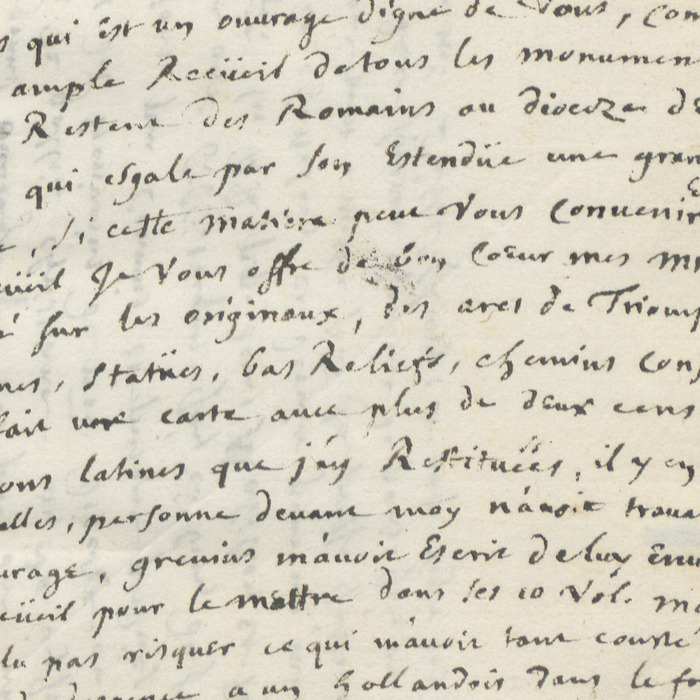 s qui est un ouurage digne de Vous, Com
ample Recüeil detous les monumen
Restent des Romains au dioceze de
qui esgale par son Estendüe une gran
, si cette matiere peut Vous Conuenir
üeil Je Vous offre de bon Coeur mes m
é sur les originaux, des arcs de Triomp
nes, Statües, bas Reliefs, chemins Con
fait une carte auec plus de deux cens
ons latines que j'ay Restituées, il y en
elles, personne deuant moy n'auoit traua
urage, greuius m'auoit Escrit de luy Enu
cüeil pour le mettre dans ses 10 Vol. m
lu pas risquer ce qui m'auoit tant couste
a un hollandois dans le